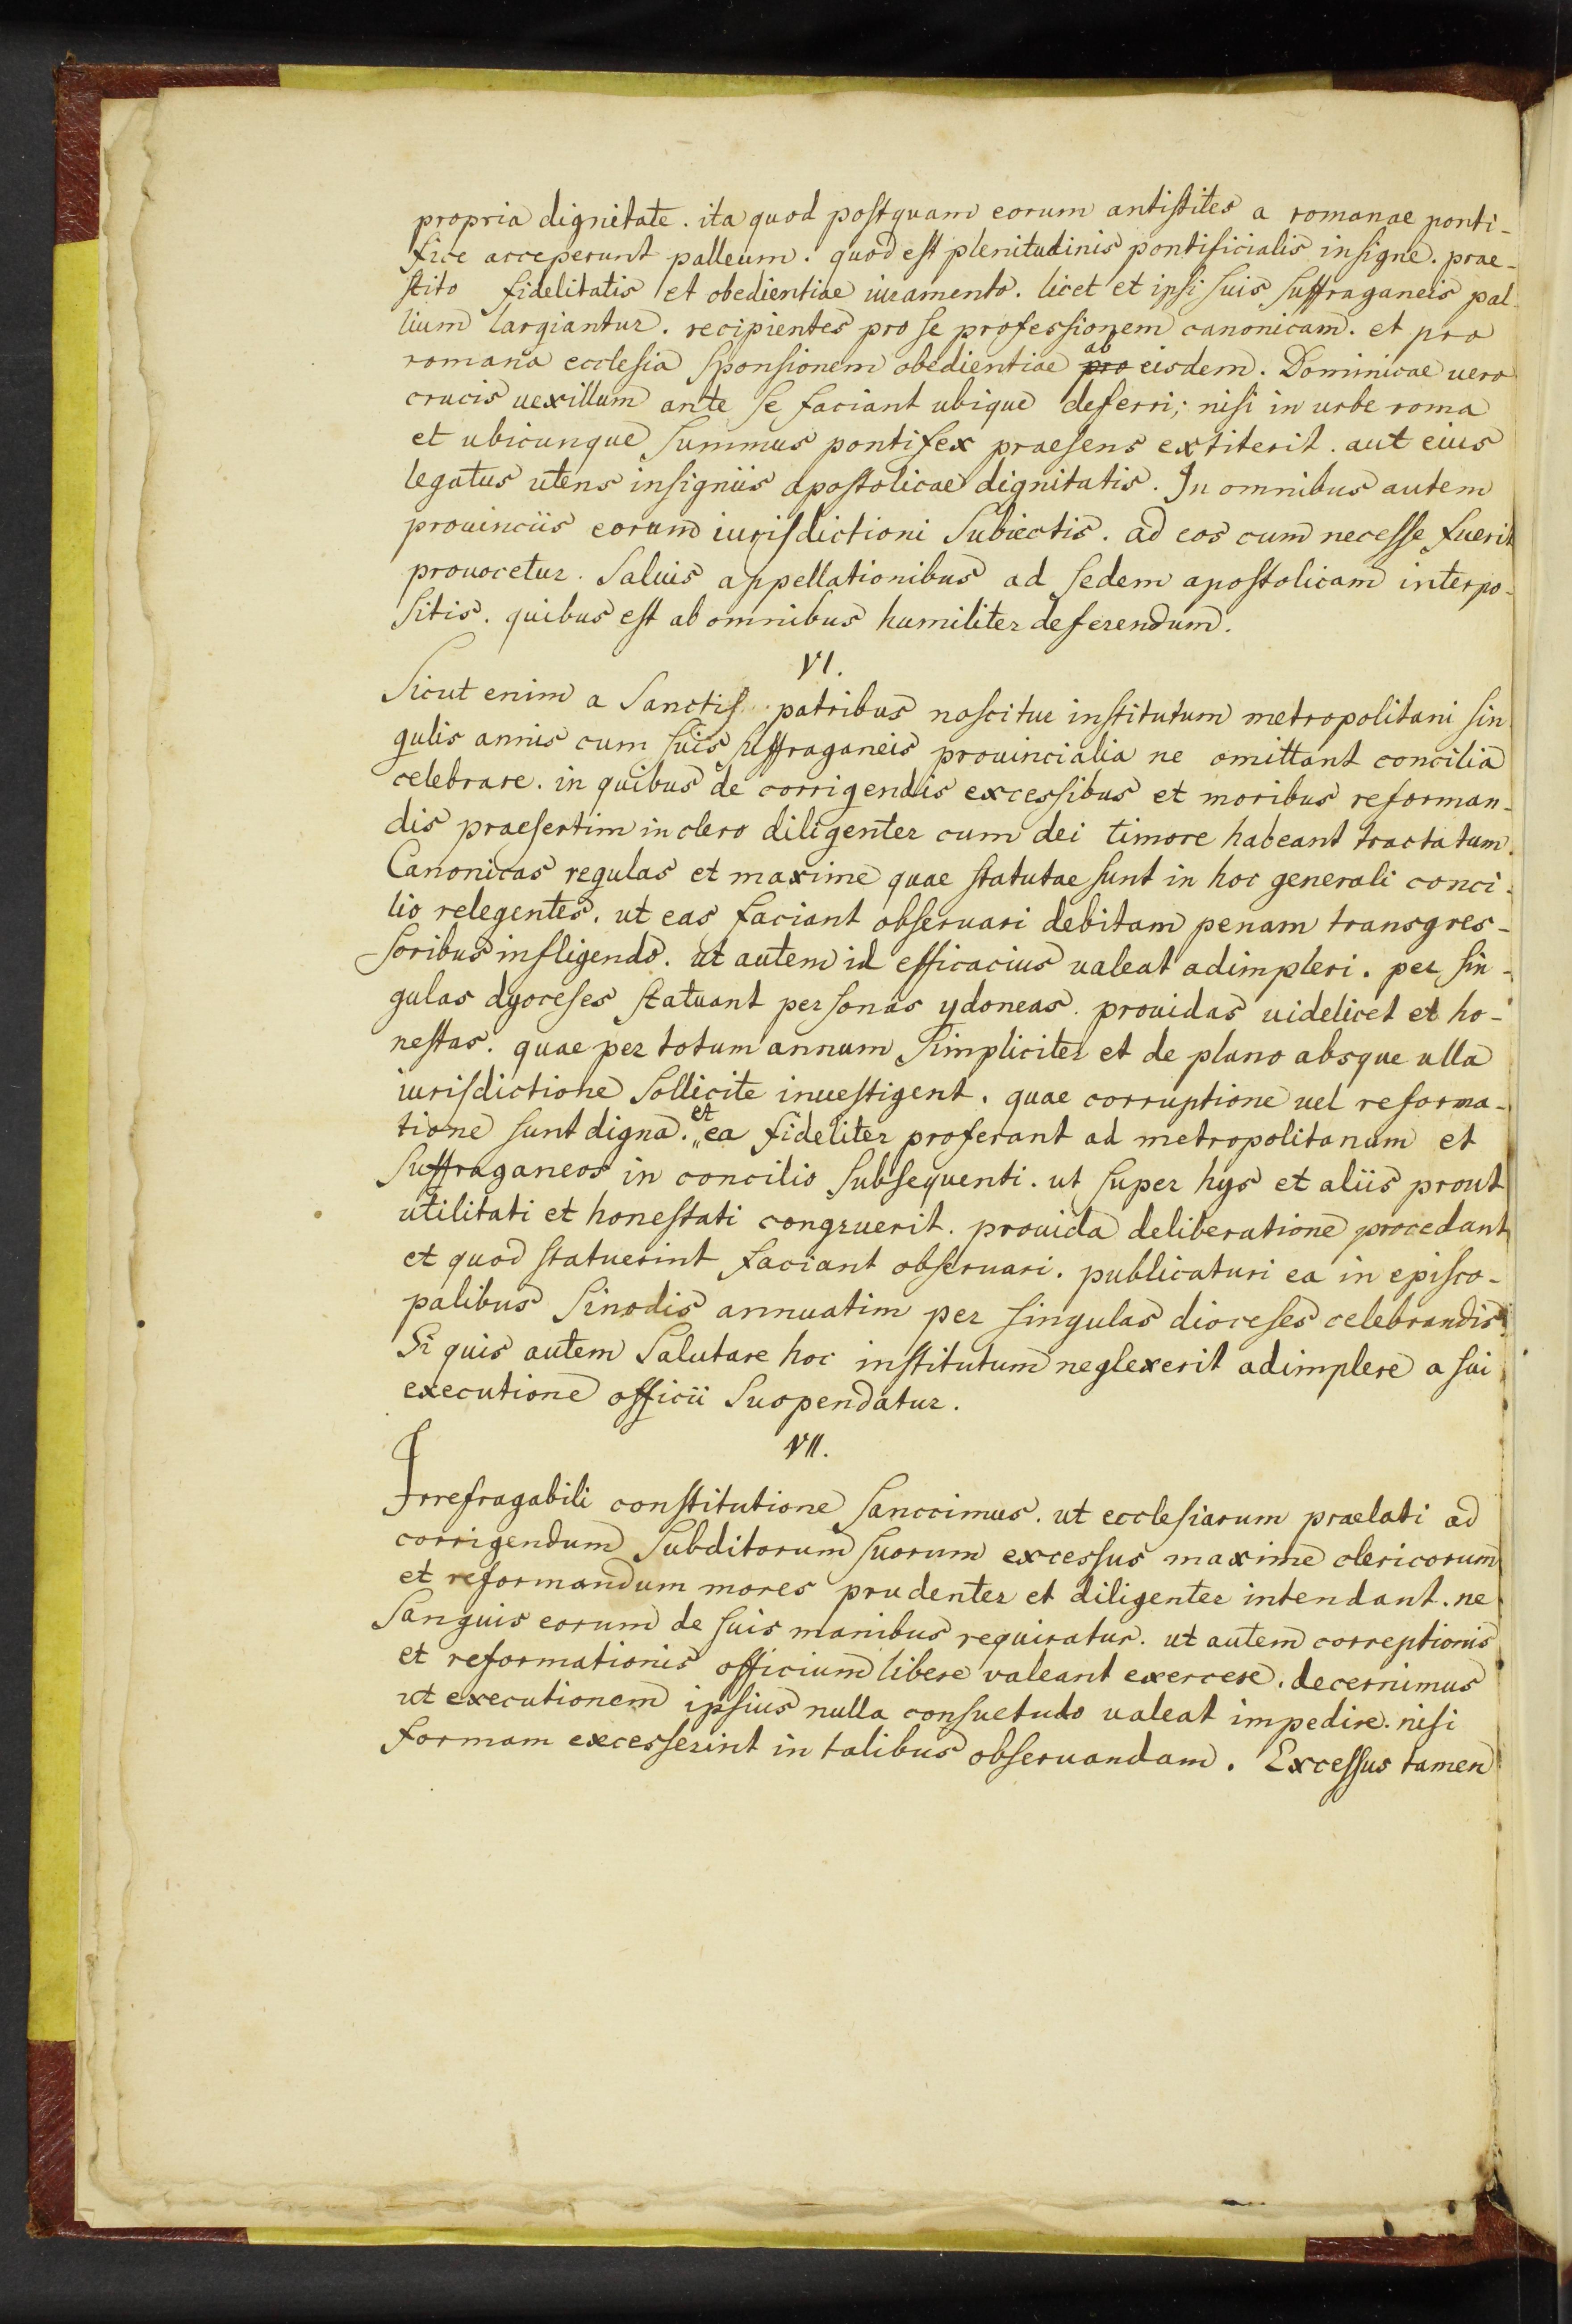 propria dignitate. ita quod postquam eorum antistites a romanae ponti-
fice acceperunt palleum. quod est plenitudinis pontificialis insigne. prae-
stito fidelitatis et obedientiae iuramento. licet et ipsi suis suffraganeis pal
lium largiantur. recipientes pro se professionem canonicam. et pro
romana ecclesia sponsionem obedientiae pro ab eisdem. Dominicae uero
crucis uexillum ante se faciant ubique deferri; nisi in urbe roma
et ubicunque summus pontifex praesens extiterit. aut eius
legatus utens insigniis apostolicae dignitatis. In omnibus autem
prouinciis eorum iurisdictioni subiectis. ad eos cum necesse fuerit
prouocetur. saluis appellationibus ad sedem apostolicam interpo-
sitis. quibus est ab omnibus humiliter deferendum.
VI.
Sicut enim a sanctis patribus noscitur institutum metropolitani sin
gulis annis cum suis suffraganeis prouincialia ne omittant concilia
celebrare. in quibus de corrigendis excessibus et moribus reforman-
dis praesertim in clero diligenter cum dei timore habeant tractatum.
Canonicas regulas et maxime quae statutae sunt in hoc generali conci-
lio relegentes. ut eas faciant obseruari debitam penam transgres-
soribus infligendo. ut autem id efficacius ualeat adimpleri. per sin-
gulas dyoceses statuant personas ydoneas. prouidas uidelicet et ho-
nestas. quae per totum annum simpliciter et de plano absque ulla
iurisdictione sollicite inuestigent. quae corruptione uel reforma-
tione sunt digna. et ea fideliter proferant ad metropolitanum et
suffraganeos in concilio subsequenti. ut super hys et aliis prout
utilitati et honestati congruerit. prouida deliberatione procedant
et quod statuerint faciant obseruari. publicaturi ea in episco-
palibus sinodis annuatim per singulas dioceses celebrandis.
Si quis autem salutare hoc institutum neglexerit adimplere a sui
executione officii suspendatur.
VII.
Irrefragabili constitutione sanccimus. ut ecclesiarum praelati ad
corrigendum subditorum suorum excessus maxime clericorum
et reformandum mores prudenter et diligenter intendant. ne
sanguis eorum de suis manibus requiratur. ut autem correptionis
et reformationis officium libere valeant exercere. decernimus
ut executionem ipsius nulla consuetudo ualeat impedire. nisi
formam excesserint in talibus obseruandam. Excessus tamen